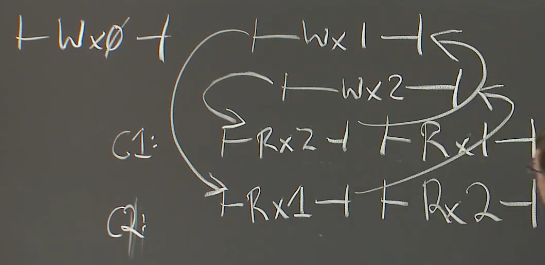 |-Wxø-| |-Wx1-|
|-Wx2-|
C1: |-Rx2-| |-Rx1-|
C2: |-Rx1-| |-Rx2-|